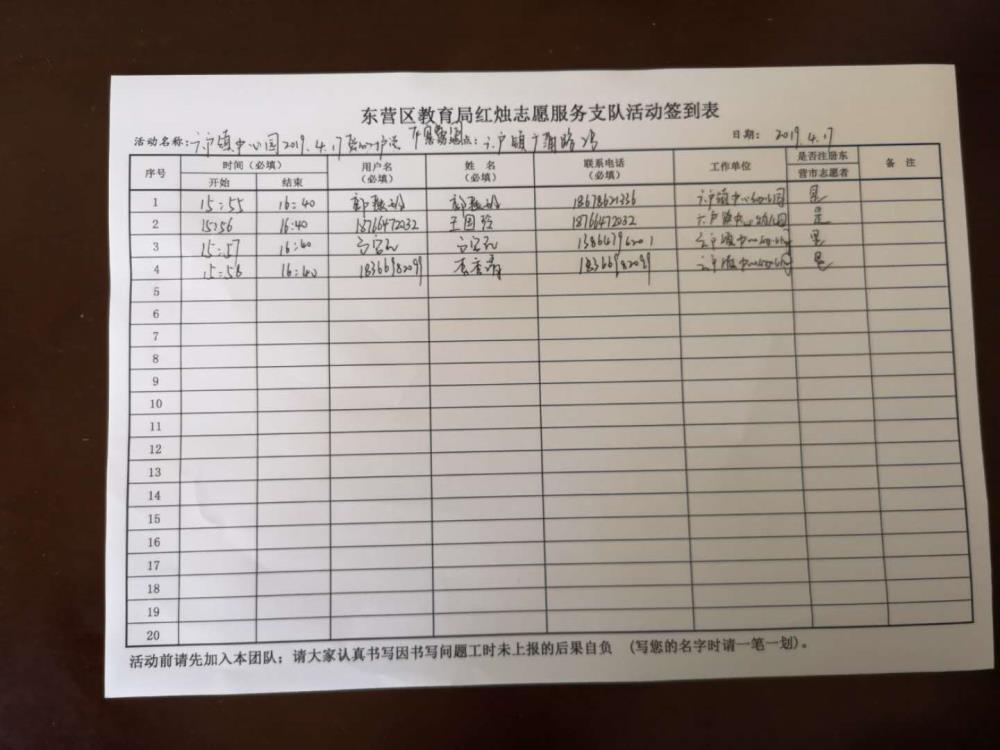 东营区教育局红烛志愿服务支队活动签到表
活动名称: 六户镇中心园2019.4.17 活动地点: 六户镇广蒲路 日期: 2019.4.17
序号 时间(必填) 用户名(必填) 姓名(必填) 联系电话(必填) 工作单位 是否注册东营市志愿者 备注
开始 结束
1 15:55 16:40 18678621336 六户镇中心幼儿园 是
2 15:56 16:40 18766472032 王国玲 18766472032 六户镇中心幼儿园 是
3 15:57 16:40 六户镇中心幼儿园 是
4 15:58 16:40 18366982099 18366982099 六户镇中心幼儿园 是
5
6
7
8
9
10
11
12
13
14
15
16
17
18
19
20
活动前请先加入本团队;请大家认真书写因书写问题工时未上报的后果自负 (写您的名字时请一笔一划)。